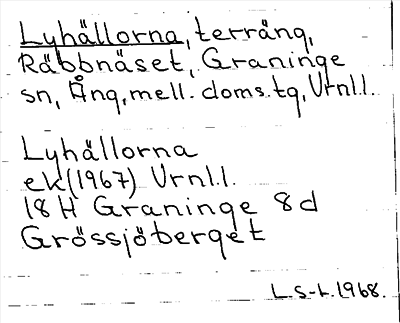 Lyhällorna, terräng,
Räbbnäset, Graninge
sn, Ång, mell. doms.tg, Vrnl.l.
Lyhällorna
ek(1967) Vrnl.l.
18 H Graninge 8d
Grössjöberget
L.S-L.1968.